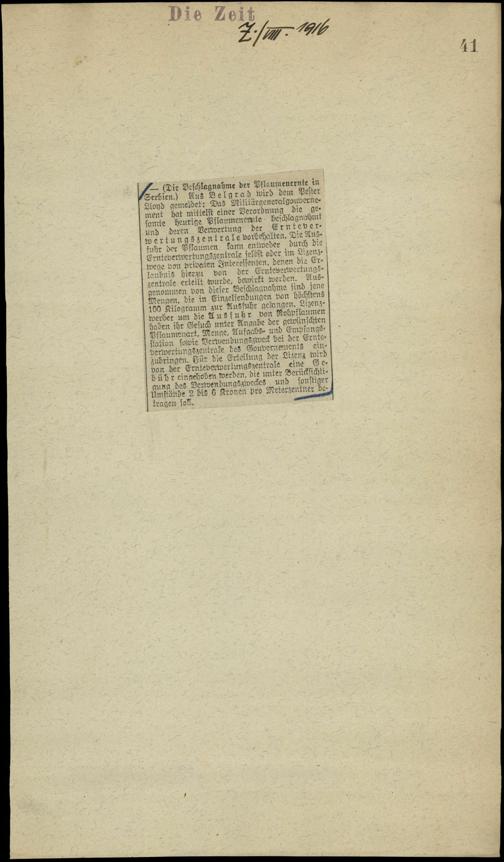 Die Zeit
7./VIII. 1916
41
— (Die Beschlagnahme der Pflaumenernte in
Serbien.) Aus Belgrad wird dem Pester
Lloyd gemeldet: Das Militärgeneralgouverne-
ment hat mittelst einer Verordnung die ge-
samte heurige Pflaumenernte beschlagnahmt
und deren Verwertung der Erntever-
wertungszentrale vorbehalten. Die Aus-
fuhr der Pflaumen kann entweder durch die
Ernteverwertungszentrale selbst oder im Lizenz-
wege von privaten Interessenten, denen die Er-
laubnis hierzu von der Ernteverwertungs-
zentrale erteilt wurde, bewirkt werden. Aus-
genommen von dieser Beschlagnahme sind jene
Mengen, die in Einzelsendungen von höchstens
100 Kilogramm zur Ausfuhr gelangen. Lizenz-
werber um die Ausfuhr von Rohpflaumen
haben ihr Gesuch unter Angabe der gewünschten
Pflaumenart, Menge, Aufgabs- und Empfangs-
station sowie Verwendungszweck bei der Ernte-
verwertungszentrale des Gouvernements ein-
zubringen. Für die Erteilung der Lizenz wird
von der Ernteverwertungszentrale eine Ge-
bühr eingehoben werden, die unter Berücksichti-
gung des Verwendungszweckes und sonstiger
Umstände 2 bis 6 Kronen pro Meterzentner be-
tragen soll.